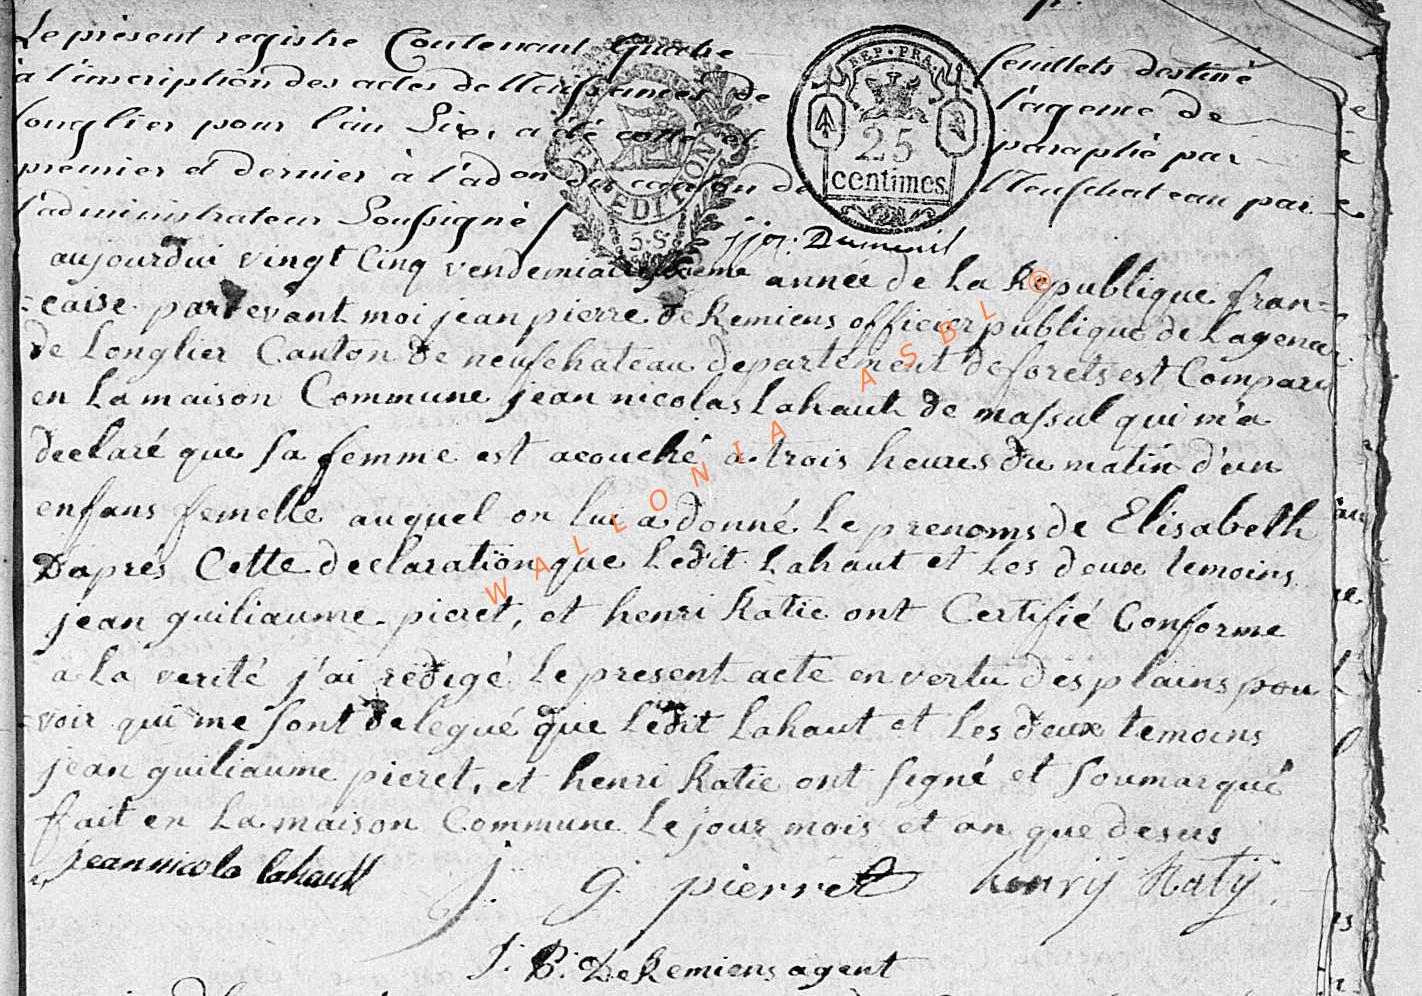 Le présent registre Contenant quatre feuillets destiné
à l'inscription des actes de Neissances de l'agence de
longlier pour l'an Six, a été cotté et paraphé par
premier et dernier à l'adon du canton de Neufchateau par
l'administrateur Soussigné
REP. FRA.
25
centimes
EXPEDITION
5. S.
jjos. Dumenil
aujourdui vingt Cinq vendemiaire sixeme année de la Republique fran=
=caise pardevant moi jean pierre de Remiens officier publique de Lagence
de Longlier Canton de neufchateau departement de forets est Comparu
en La maison Commune jean nicolas Lahaut de massul qui m'a
declaré que sa femme est acouché a trois heures du matin d'un
enfans femelle auquel on lui a donné Le prenoms de Elisabeth
Daprés Cette declaration que Ledit Lahaut et Les deux temoins
jean guiliaume pieret, et henri Katie ont Certifié Conforme
a La verité j'ai redigé Le present acte en vertu des plains pou
=voir qui me sont delegué que Ledit Lahaut et Les deux temoins
jean guiliaume pieret, et henri Katie ont signé et soumarqué
fait en La maison Commune Le jour mois et an que desus
jean nicola lahault j. g. pierret henrij Katij
J. P. De Remiens agent
WALLONIA ASBL ®